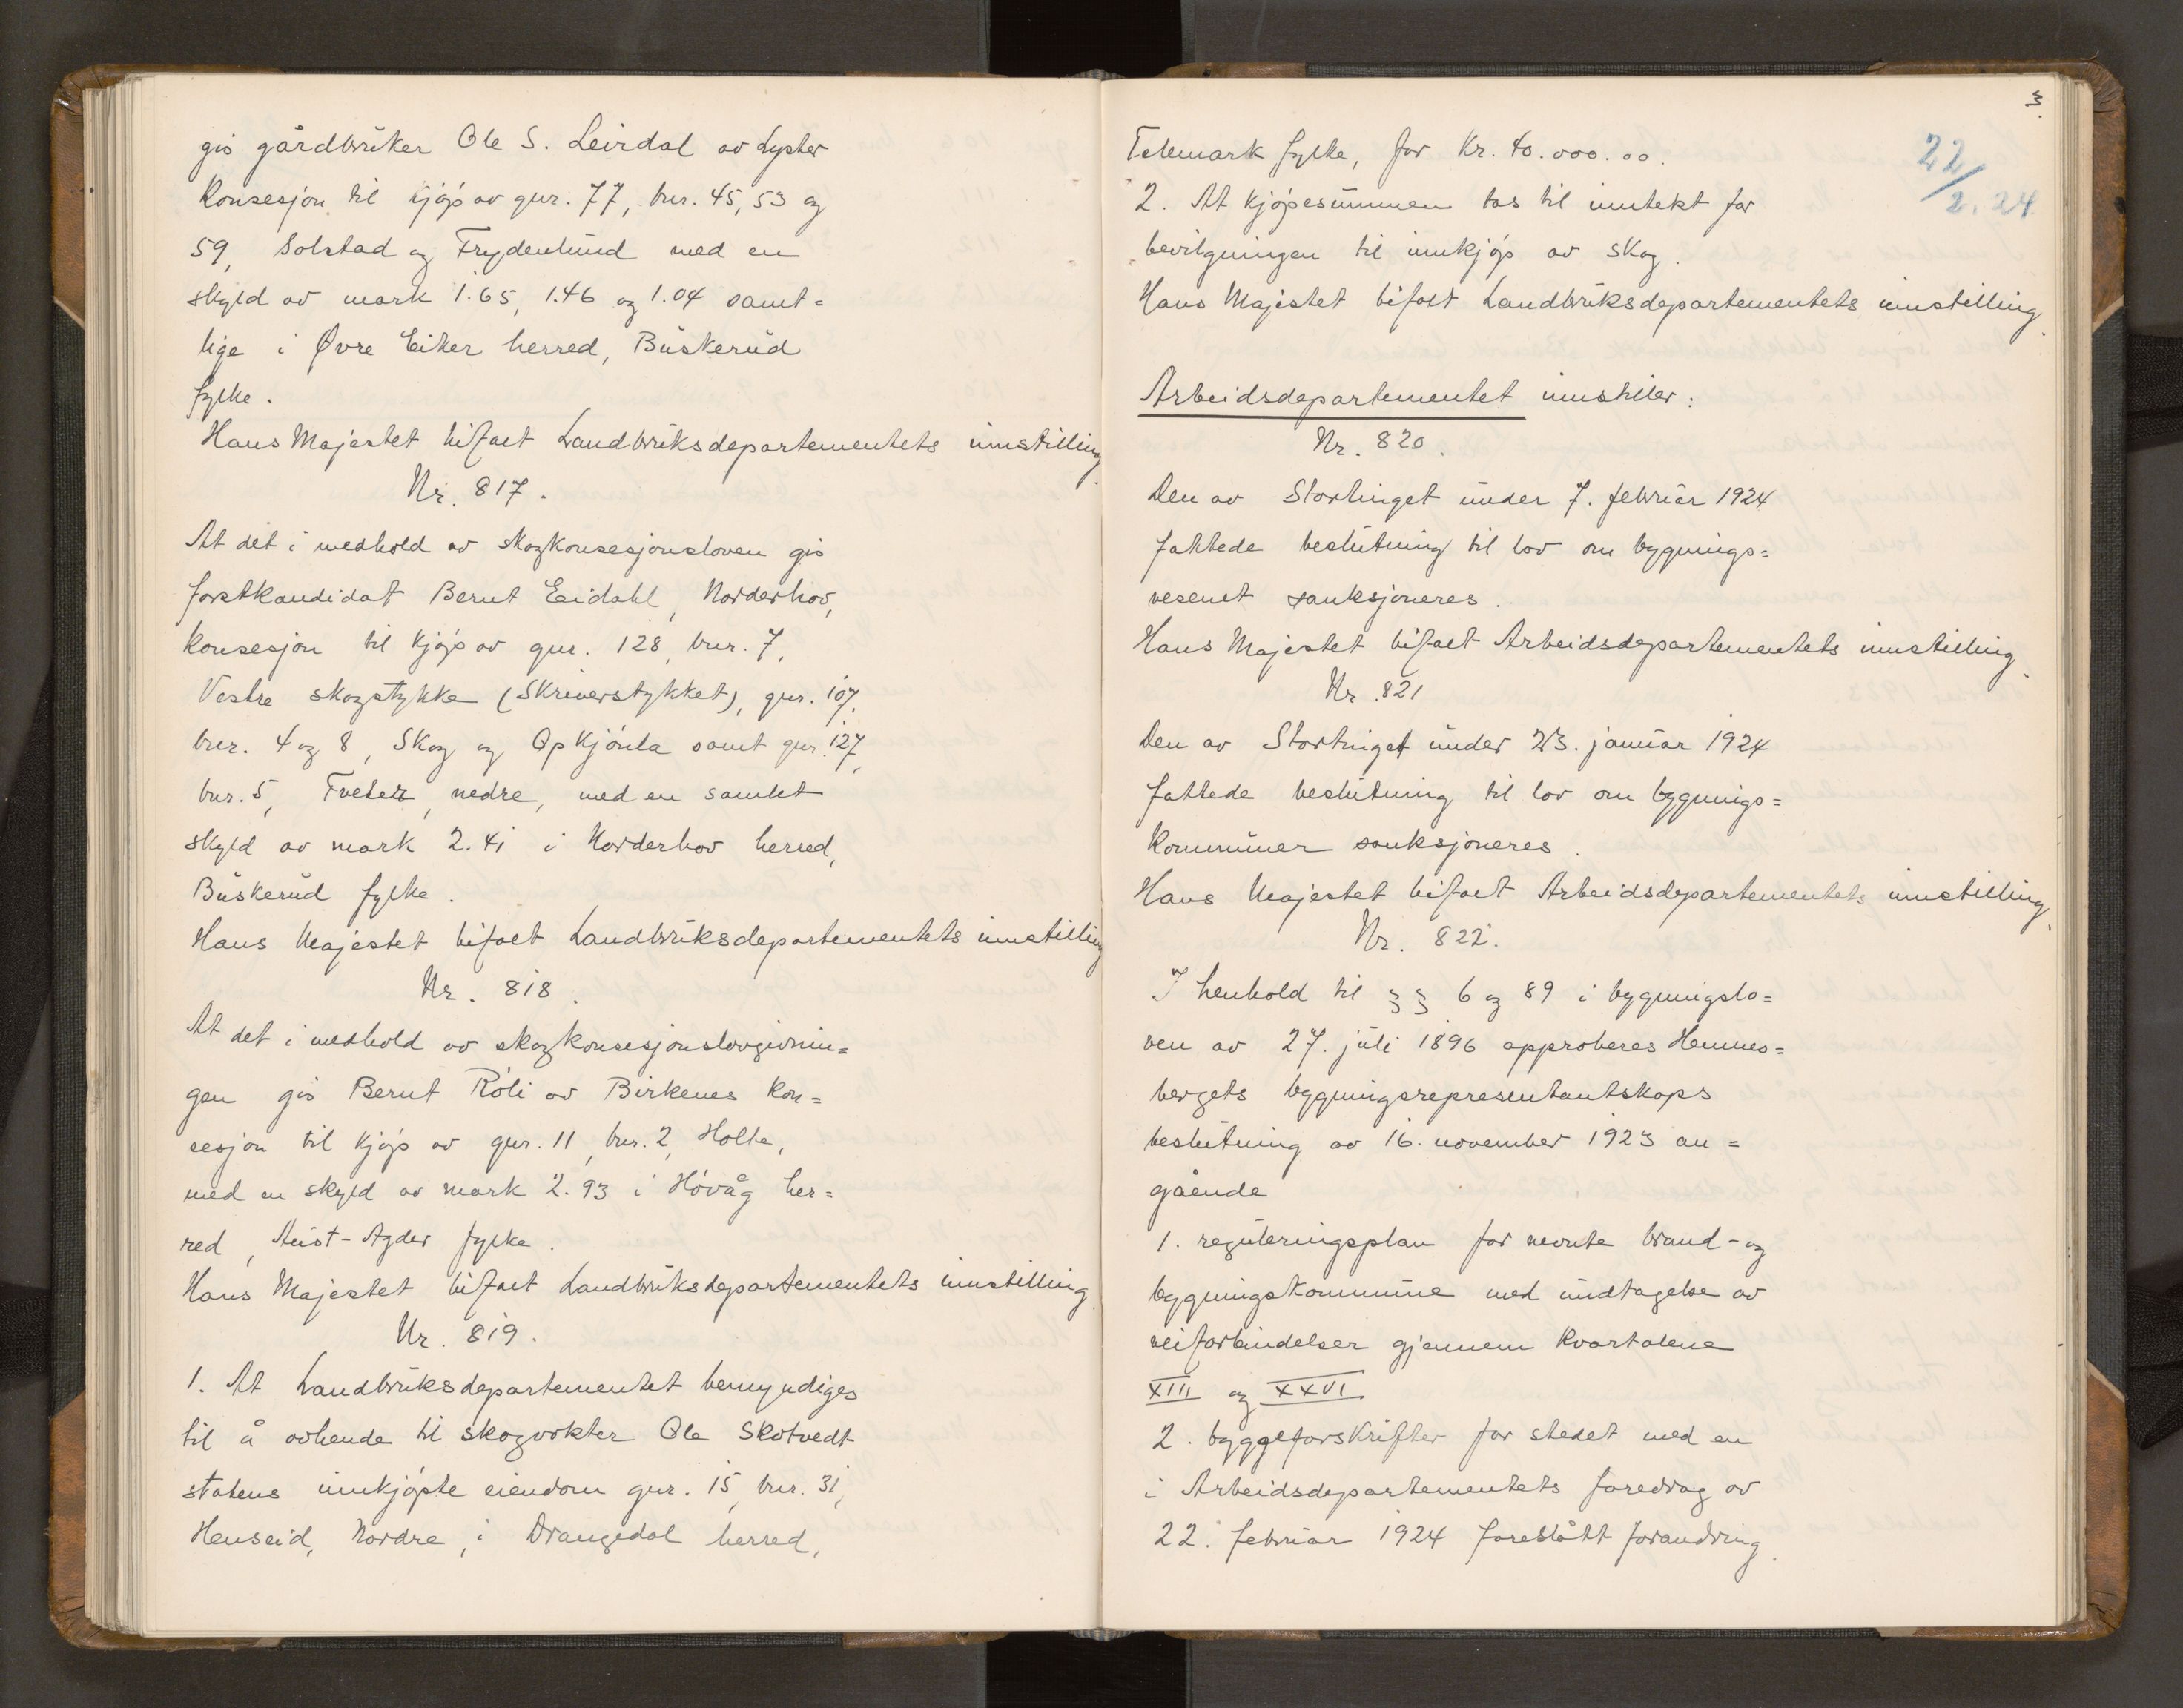 gis gårdbruker Ole S. Leirdal av Lyster
konsesjon til kjøp av gnr. 77, bnr. 45, 53 og
59, Solstad og Frydenlund med en
skyld av mark 1.65, 1.46 og 1.04 samt=
lige i Øvre Eiker herred, Buskerud
fylke.
Hans Majestet bifalt Landbruksdepartementets innstilling.
Nr. 817.
At det i medhold av skogkonsesjonsloven gis
forstkandidat Bernt Eidahl, Norderhov,
konsesjon til kjøp av gnr. 128, bnr. 7,
Vestre skogstykke (Skriverstykket), gnr. 107,
bnr. 4 og 8, Skog og Opkjønla samt gnr. 127,
bnr. 5, Tveter, nedre, med en samlet
skyld av mark 2.41 i Norderhov herred,
Buskerud fylke.
Hans Majestet bifalt Landbruksdepartementets innstilling
Nr. 818.
At det i medhold av skogkonsesjonslovgivnin=
gen gis Bernt Røli av Birkenes kon=
sesjon til kjøp av gnr. 11, bnr. 2, Holte,
med en skyld av mark 2.93 i Høvåg her=
red, Aust-Agder fylke.
Hans Majestet bifalt Landbruksdepartementets innstilling.
Nr. 819.
1. At Landbruksdepartementet bemyndiges
til å avhende til skogvokter Ole Skotvedt
statens innkjøpte eiendom gnr. 15, bnr. 31,
Henseid, Nordre, i Drangedal herred,
3.
22/2. 24
Telemark fylke, for kr. 40.000.00.
2. At kjøpesummen tas til inntekt for
bevilgningen til innkjøp av skog.
Hans Majestet bifalt Landbruksdepartementets innstilling.
Arbeidsdepartementet innstiller:
Nr. 820.
Den av Stortinget under 7. februar 1924
fattede beslutning til lov om bygnings=
vesenet sanksjoneres.
Hans Majestet bifalt Arbeidsdepartementets innstilling.
Nr. 821
Den av Stortinget under 23. januar 1924
fattede beslutning til lov om bygnings=
kommuner sanksjoneres.
Hans Majestet bifalt Arbeidsdepartementets innstilling.
Nr. 822.
I henhold til §§ 6 og 89 i bygningslo=
ven av 27. juli 1896 approberes Hennes=
bergets bygningsrepresentantskaps
beslutning av 16. november 1923 an=
gående
1. reguleringsplan for nevnte brand- og
bygningskommune med undtagelse av
veiforbindelser gjennem kvartalene
XIII og XXVI
2. byggeforskrifter for stedet med en
i Arbeidsdepartementets foredrag av
22. februar 1924 foreslått forandring.